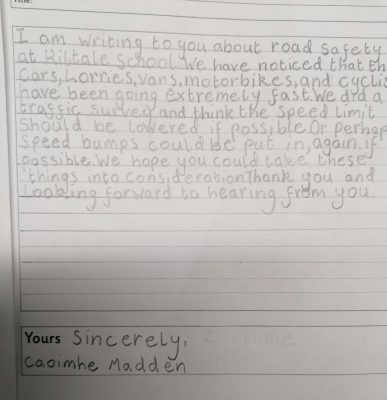 I am writing to you about road safety
at Kiltale School. We have noticed that th
cars, Lorries, vans, motorbikes, and cyclis
have been going extremely fast. We did a
traffic survey and think the speed limit
should be lowered if possible. Or perhap
speed bumps could be put in, again, if
possible. We hope you could take these
things into consideration. Thank you and
looking forward to hearing from you.
Yours Sincerely,
Caoimhe Madden